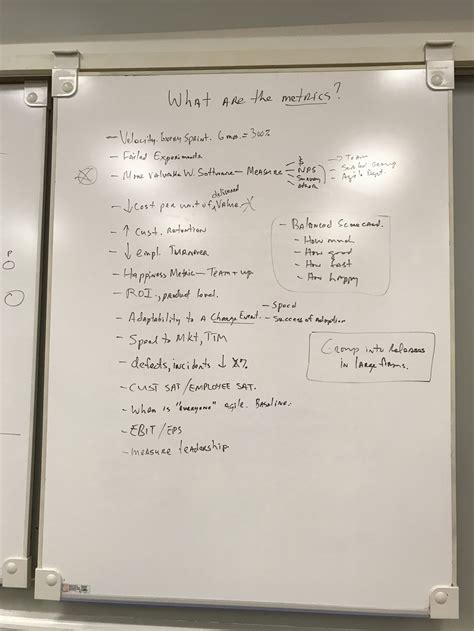 What are the metrics?
- Velocity. Every Sprint. 6 mos. = 300%
- Failed Experiments
- More valuable W. Software - Measure
- $
- NPS
- Survey
- other
- Team
- Agile Dept.
- ↓ Cost per unit of delivered Value
- ↑ Cust. retention
- ↓ Empl. Turnover
- Happiness Metric - Team + up.
- ROI, product level.
- Adaptability to a Change Event.
- Speed
- Success of Adoption
- Speed to Mkt, TTM
- defects, incidents ↓ X%
- Cust Sat/Employee Sat.
- When is "everyone" agile. Baseline.
- EBIT/EPS
- measure leadership
- Balanced Scorecard.
- How much
- How good
- How fast
- How happy
Group into Releases
in large firms.